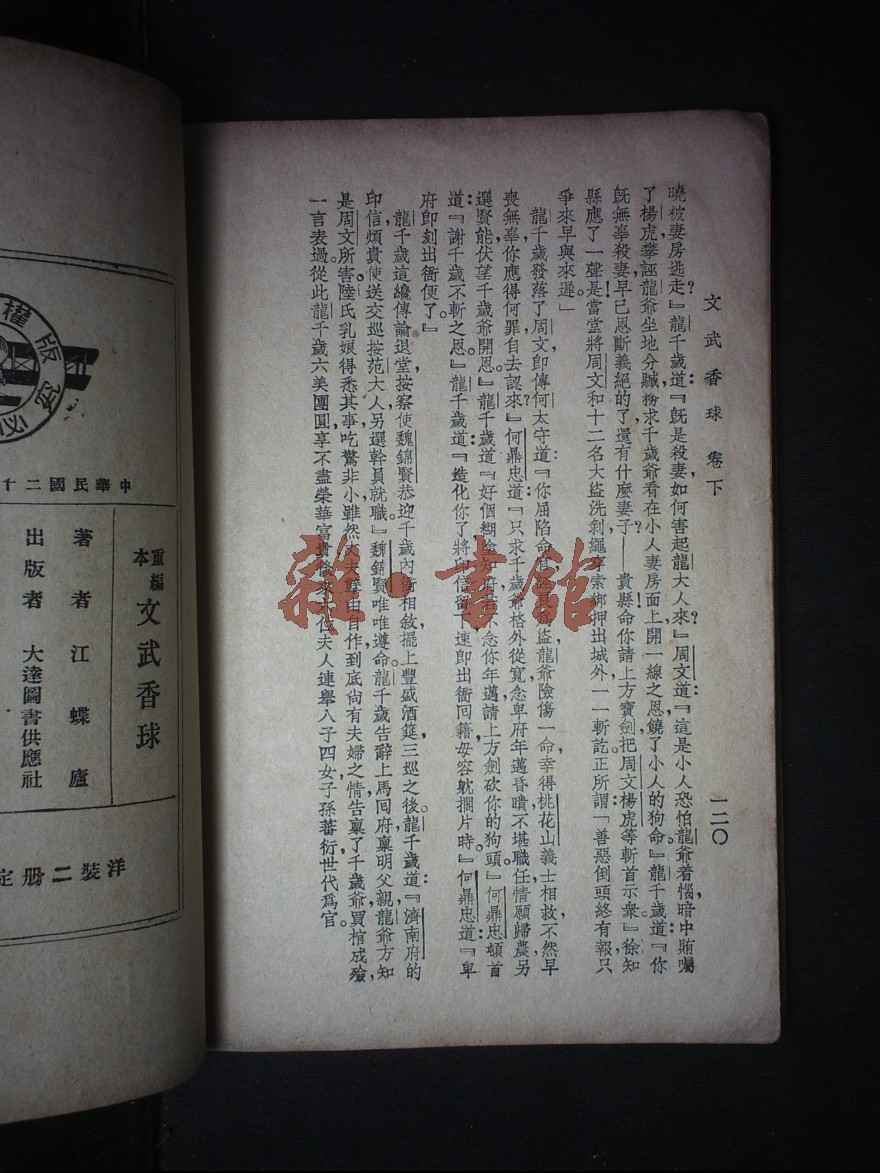 文武香球 卷下
一二〇
曉被妻房逃走』龍千歲道：『既是殺妻，如何害起龍大人來？』周文道：『這是小人恐怕龍爺着惱，暗中賄囑
了楊虎攀誣龍爺坐地分贓，務求千歲爺看在小人妻房面上，開一線之恩，饒了小人的狗命。』龍千歲道：『你
既無辜殺妻，早已恩斷義絕的了，還有什麼妻子？——貴縣命你請上方寶劍，把周文楊虎等斬首示衆。』徐知
縣應了一聲是！當堂將周文和十二名大盜洗剝繩穿索綁，押出城外，一一斬訖，正所謂「善惡到頭終有報，只
爭來早與來遲」
龍千歲發落了周文，即傳何太守道：『你屈陷命官
盜，龍爺險傷一命，幸得桃花山義士相救，不然早
喪無辜，你應得何罪？自去認來。』何鼎忠道：『只求千歲爺格外從寬，念卑府年邁昏瞶，不堪職任，情願歸農，另
選賢能，伏望千歲爺開恩。』龍千歲道：『好個糊塗知府，
不念你年邁，請上方劍砍你的狗頭。』何鼎忠頓首
道：『謝千歲不斬之恩。』龍千歲道：『造化你了，將印信留下，速即出衙回籍，毋容躭擱片時。』何鼎忠道：『卑
府即刻出衙便了。』
龍千歲這纔傳諭退堂，按察使魏錦賢恭迎千歲內衙相敘，擺上豐盛酒筵，三巡之後，龍千歲道：『濟南府的
印信，煩貴使送交巡按范大人，另選幹員就職。』魏錦賢唯唯遵命，龍千歲告辭上馬，回府稟明父親，龍爺方知
是周文所害，陸氏乳娘得悉其事，吃驚非小，雖然丈夫
由自作，到底尚有夫婦之情，告稟了千歲爺，買棺成殮，
一言表過。從此龍千歲六美團圓，享不盡榮華富貴，後來六位夫人連舉八子四女，子孫蕃衍，世代爲官。
版權
必
中華民國二十
重編本 文武香球
著者 江蝶廬
出版者 大達圖書供應社
洋裝二册定
雜·書館